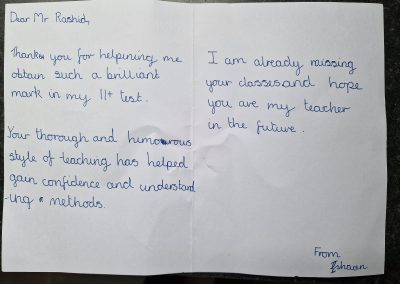 Dear Mr Rashid,
Thank you for helpining me
obtain such a brilliant
mark in my 11+ test.
Your thorough and humourous
style of teaching has helped
gain confidence and understand
-ing methods.
I am already missing
your classes and hope
you are my teacher
in the future.
From